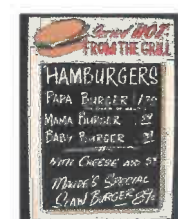 Served HOT
FROM THE GRILL
HAMBURGERS
PAPA BURGER
MAMA BURGER
BABY BURGER
WITH CHEESE ADD 5¢
MAUDE'S SPECIAL
SLAW BURGER 89¢